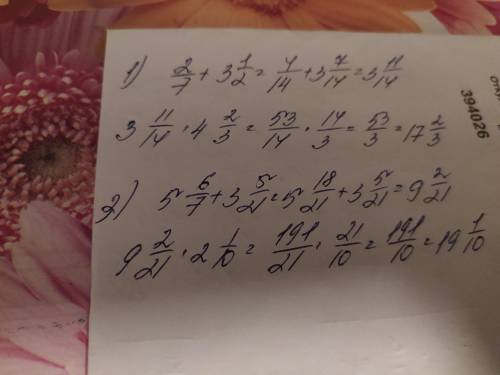 1) 2/7 + 3 1/2 = 4/14 + 3 7/14 = 3 11/14
3 11/14 · 4 2/3 = 53/14 · 14/3 = 53/3 = 17 2/3
2) 5 6/7 + 3 5/21 = 5 18/21 + 3 5/21 = 9 2/21
9 2/21 · 2 1/10 = 191/21 · 21/10 = 191/10 = 19 1/10
394026